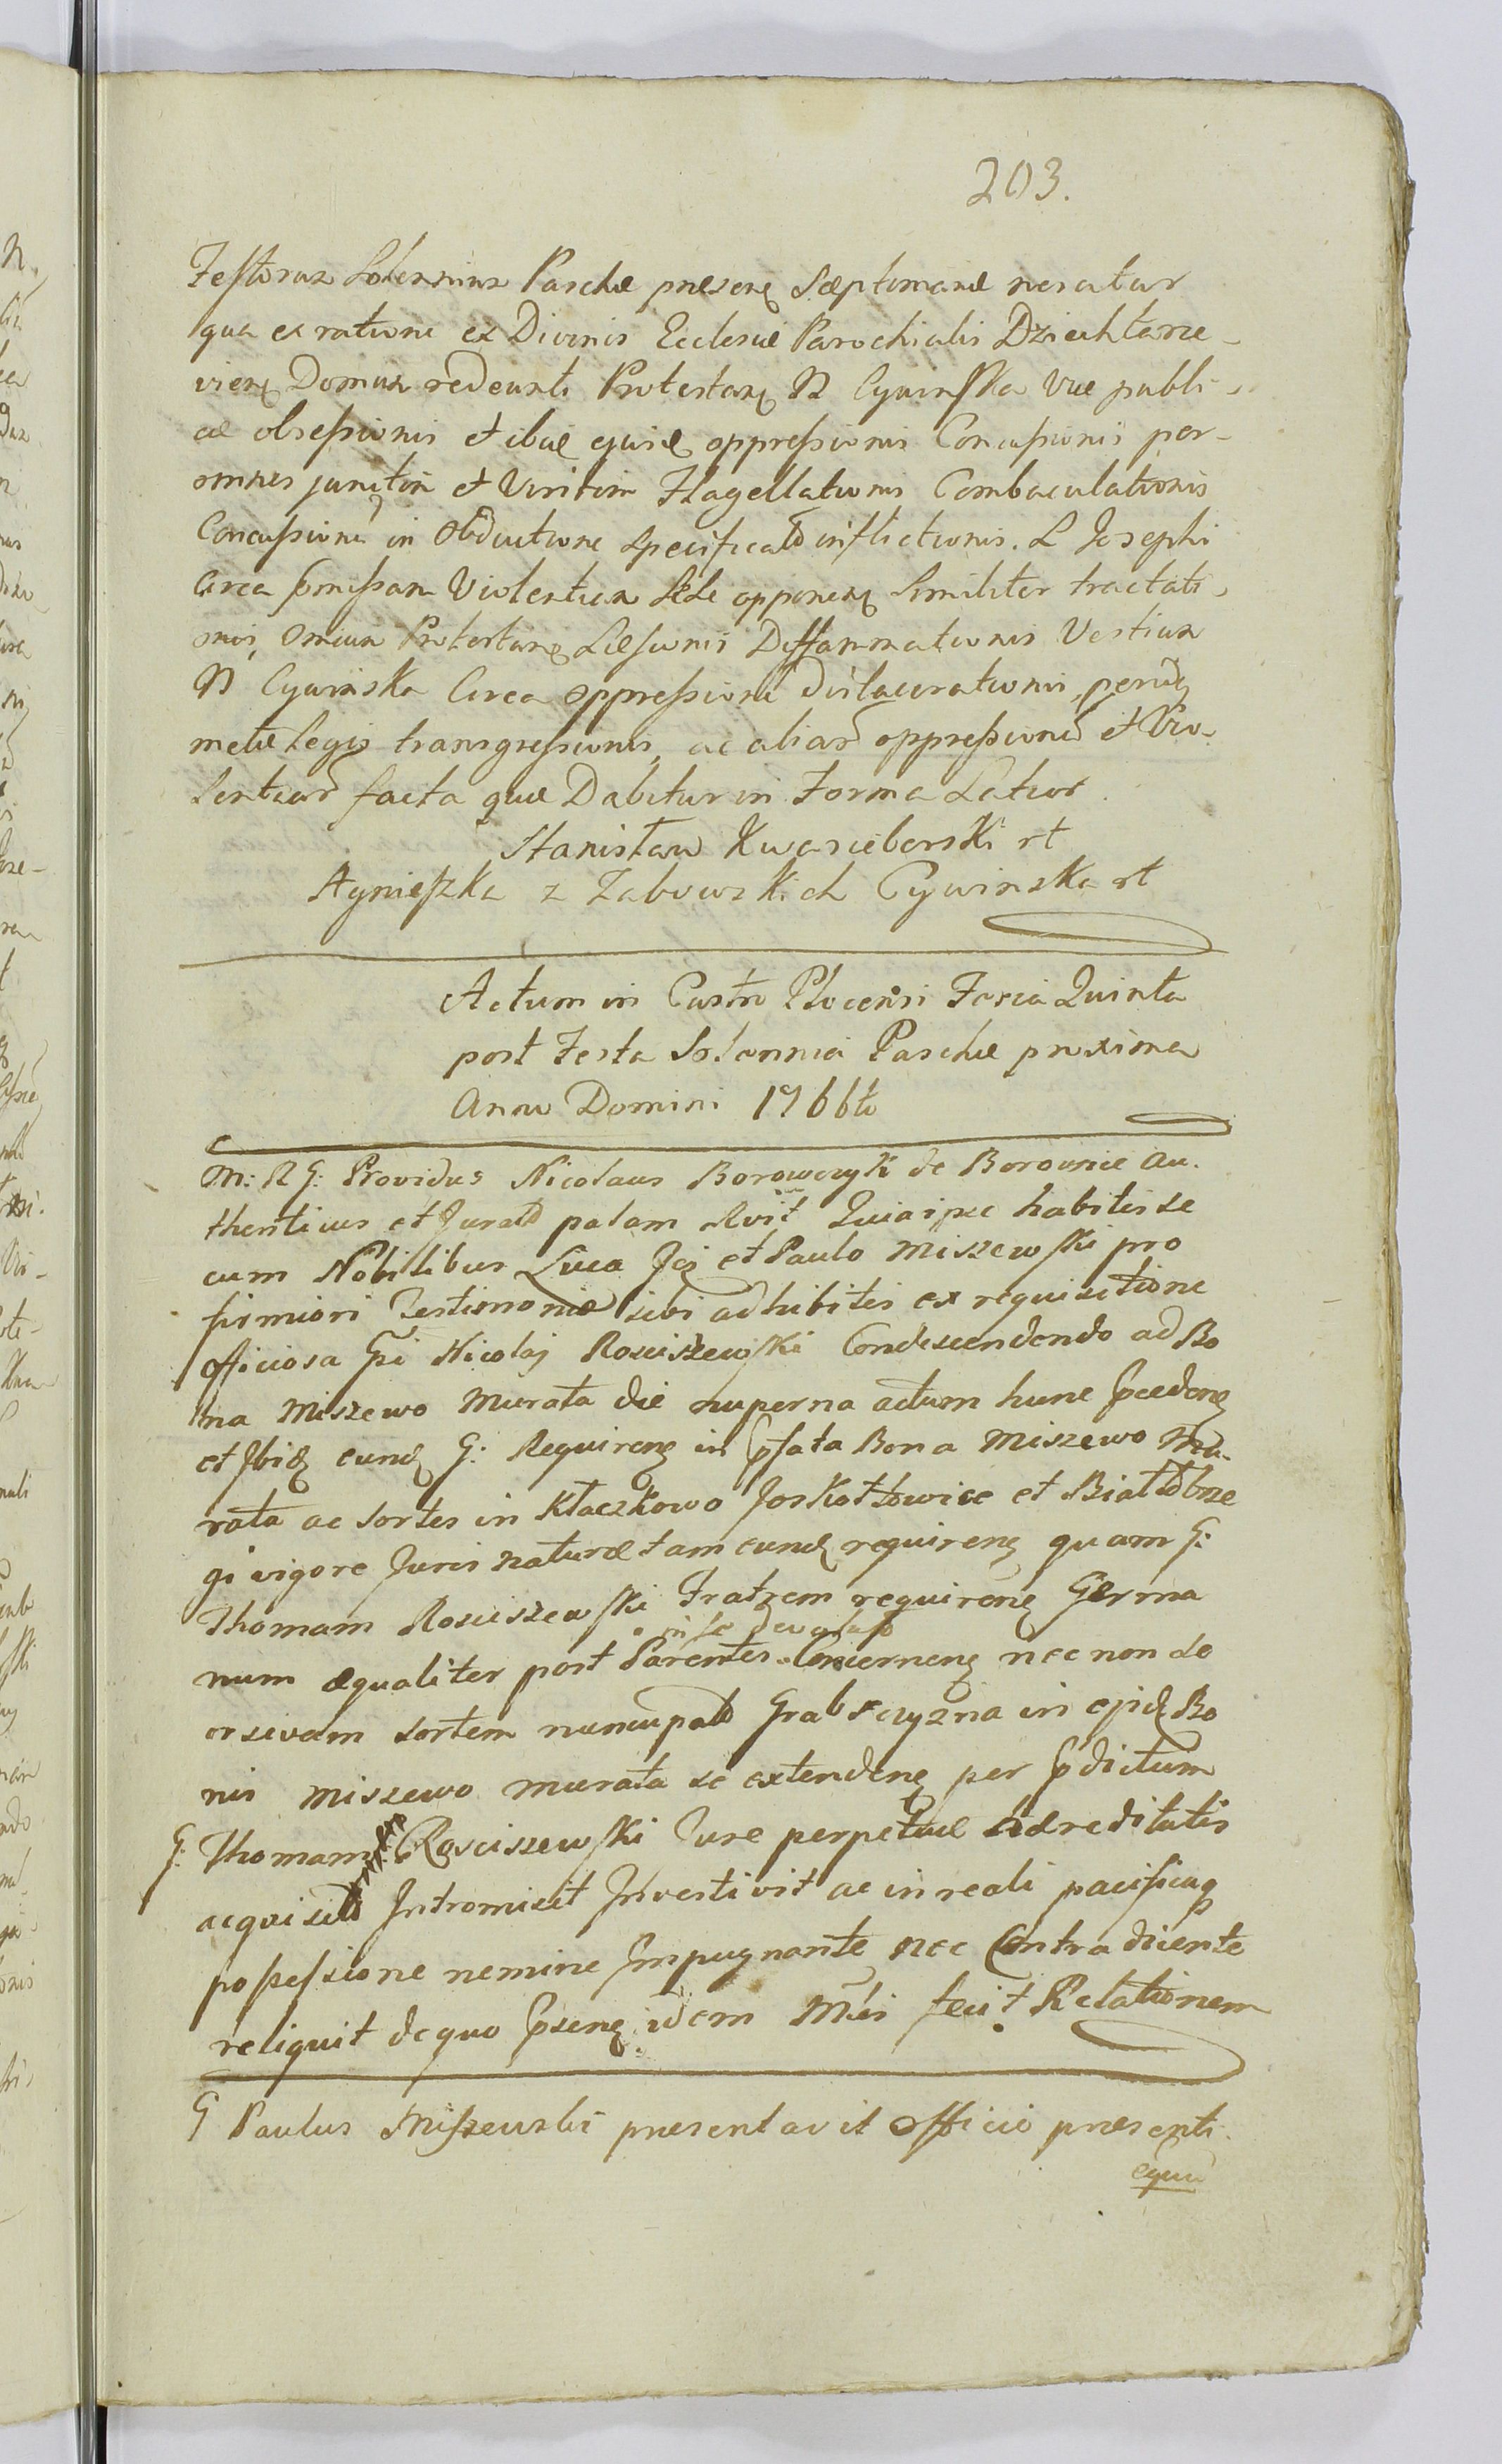 203.
Festorum Solennium Paschæ præsenę Sæptimanæ
qua ex ratione ex Divinis Ecclesiæ Parochialis Dziektarze-
vienę Domum redeunti Protestanę N Cywinska Viæ publi-
cæ obsessionis et ibiæ oppressionis Concussionis per-
omnes junctim et Viritim Flagellationis Combaculationis
Concussionū in Obductione Specificatar inflictionis. L Josephi
Circa pmissam Violentiam Sese opponenę Similiter tractati-
onis, Omnium Protestanę Læsionis Diffammationis Vestium
N Cywinska Circa oppressione dislacerationis,
metæ Legis transgressionis, ac aliar oppressionū et Vio-
lentiar facta quæ Dabitur in Forma Latior
Stanisław Kwasieborski rt
Agnieszka z Zabowskich Cywinska rt
Actum in Castro Plocensi Feria Quinta
post Festa Solennia Paschæ proxima
Anno Domini 1766to
M: R G: Providus Nicolaus Borowczyk de Borowice au-
thenticus et Jurat palam Rvit Quia ipse habitis se
cum Nobilibus Luca et Paulo Miszewski pro
firmiori Testimonio sibi adhibitis ex requisitione
officiosa Gi Nicolai Rosciszewski Condescendendo ad Bo
na Miszewo Murata die nuperna actum hunc pcedenę
et Ibidę eundę G: Requirenę in pfata Bona Miszewo Mu-
rata ac sortes in Kłaczkowo Joskotłowice et Białobrze
gi vigore Juris naturæ tam eundę requirenę quam G:
Thomam Rosciszewski Fratrem requirenę Germa
num æqualiter post Parentes in se devoluto Concernenę nec non se
orsivam sortem nuncupat Grabszczyzna in ejsdę Bo
nis Miszewo murata se extendenę per pdictum
G: Thomam Rosciszewski Jure perpetuæ hæreditatis
acquisit Intromisit Investivit ac in reali pacificaq
possessione nemine Impugnante nec Contradicente
reliquit de quo psenę idem Mūs fecit Relationem
G Paulus Miszewski præsentavit Officio præsenti
equū